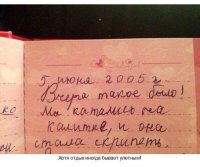 5 июня 2005 г.
Вчера такое было!
Мы катались на
ко калитке, и она
стала скрипеть.
Хотя отдых иногда бывает улетным!